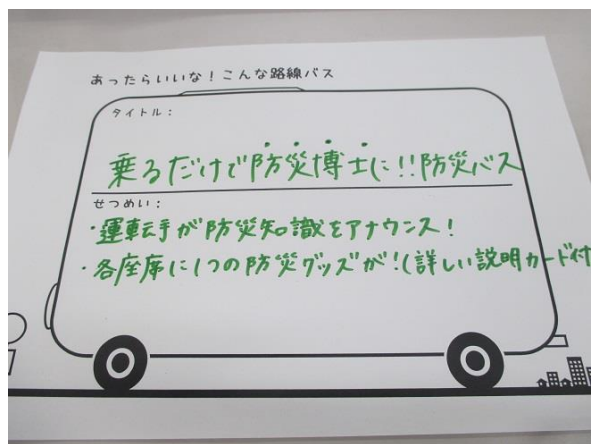 あったらいいな！こんな路線バス
タイトル：
乗るだけで防災博士に!!防災バス
せつめい：
・運転手が防災知識をアナウンス！
・各座席に1つの防災グッズが！(詳しい説明カード付